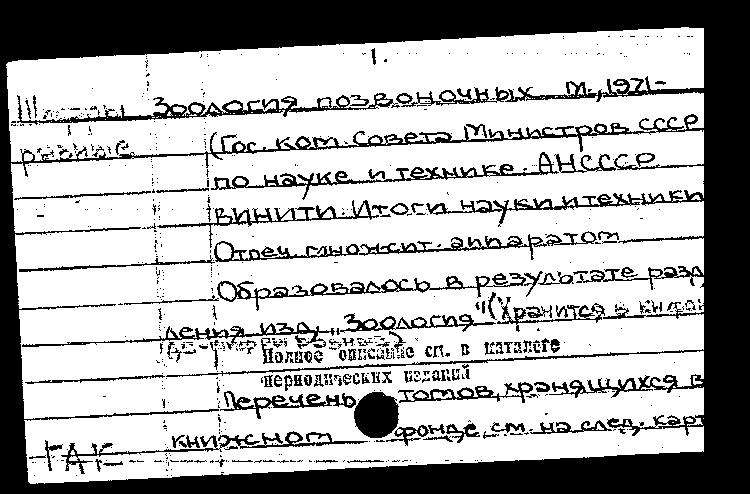 1.
Шифры Зоология позвоночных М., 1971-
разные (Гос. ком. Совета Министров СССР
по науке и технике. АНСССР
ВИНИТИ. Итоги науки и техники
Отпеч. множит. аппаратом
Образовалось в результате разд
ления изд. „Зоология" (Хранится в книжн
Полное описание см. в каталоге
периодических изданий
Перечень томов, хранящихся в
книжном фонде, см. на след. карт
ГАК